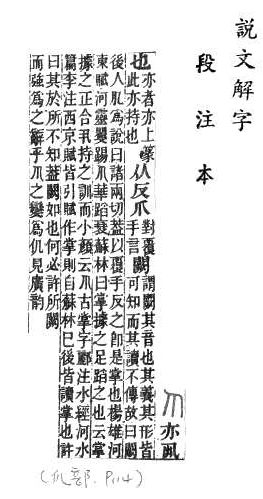 說文解字
段注本
𠃨亦丮
也亦者亦上篆此亦持也从反爪對覆手言闕謂闕其音也其義其形皆可知而其讀不傳故曰闕
後人肊爲說曰諸兩切葢以覆手反之卽是掌也楊雄河
東賦河靈矍踼𠃨華蹈衰蘇林曰掌據之足蹈之也云掌
據之正合丮持之訓而小顏云𠃨古掌字酈注水經河水
篇李注西京賦皆引賦作掌則自蘇林已後皆讀掌也許
曰其於所不知葢闕如也何必許所闕
而強爲之解乎𠃨之變爲仉見廣韵
(爪部. P114)